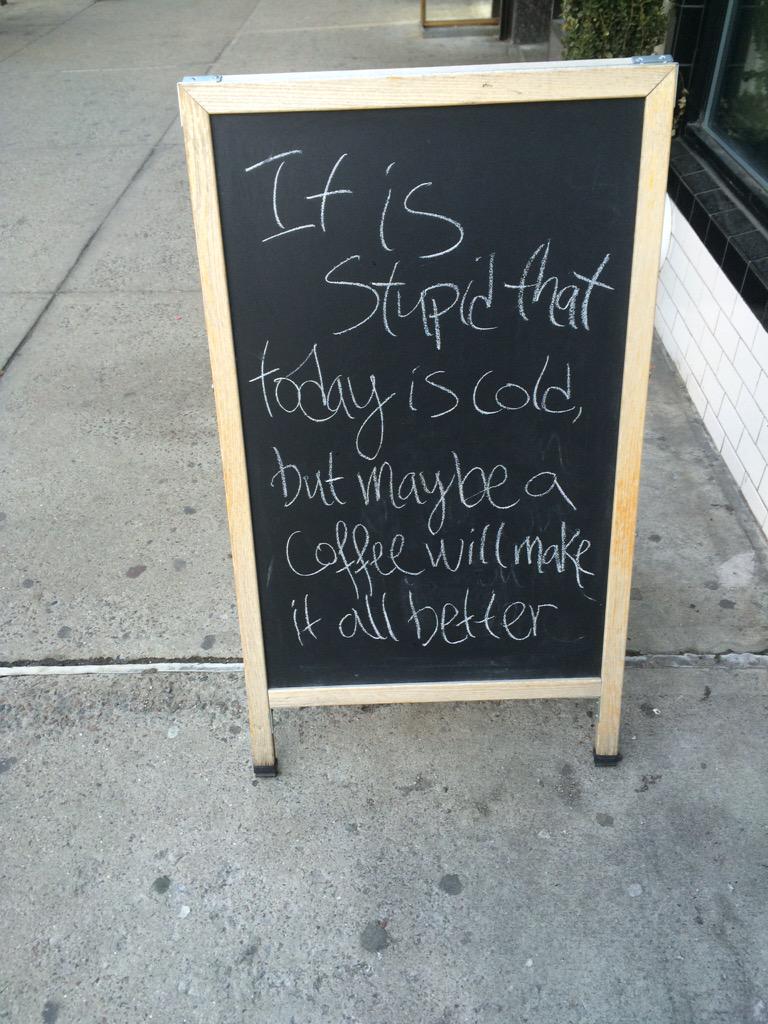 It is
Stupid that
today is cold,
but maybe a
coffee will make
it all better